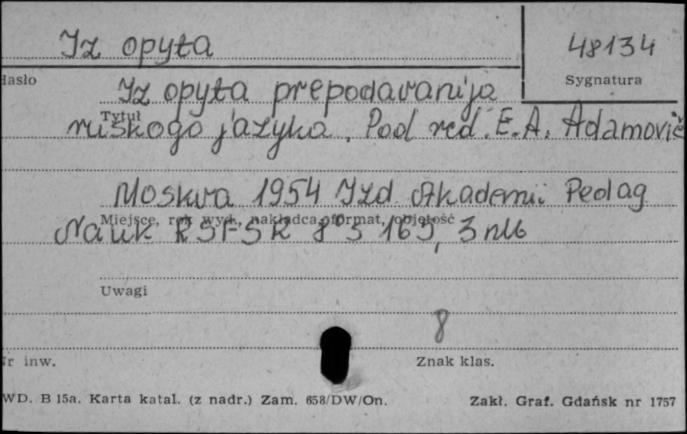 Iz opyta
48134
Hasło
Sygnatura
Iz opyta prepodavanija
Tytuł
ruskogo jazyka. Pod red. E. A. Adamovič
Moskva 1954 Izd Akademii Pedag
Miejsce, rok wyd., nakładca, format, objętość
Nauk RSFSR 8° S 165, 3 nlb
Uwagi
8
Nr inw.
Znak klas.
WD. B 15a. Karta katal. (z nadr.) Zam. 658/DW/On.
Zakł. Graf. Gdańsk nr 1757